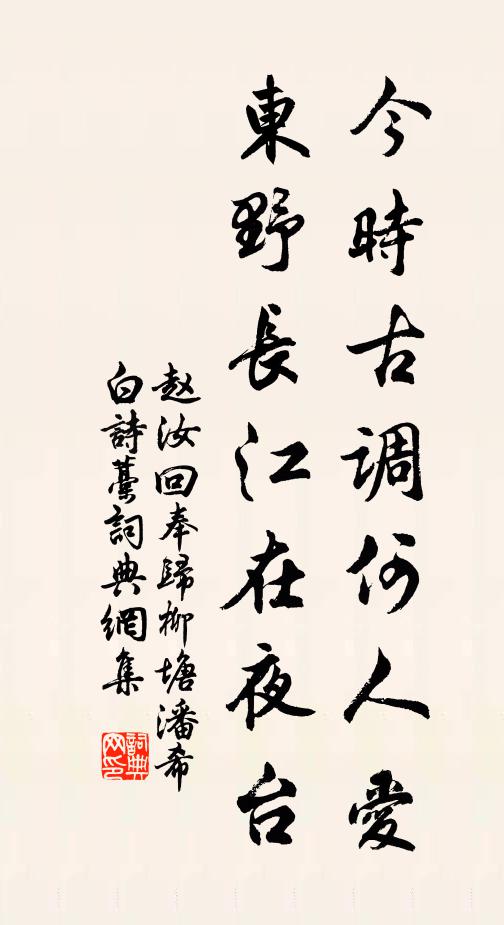 今時古調何人愛
東野長江在夜台
赵汝回奉歸柳塘潘希
白詩藁詞典網集
詞典
网印